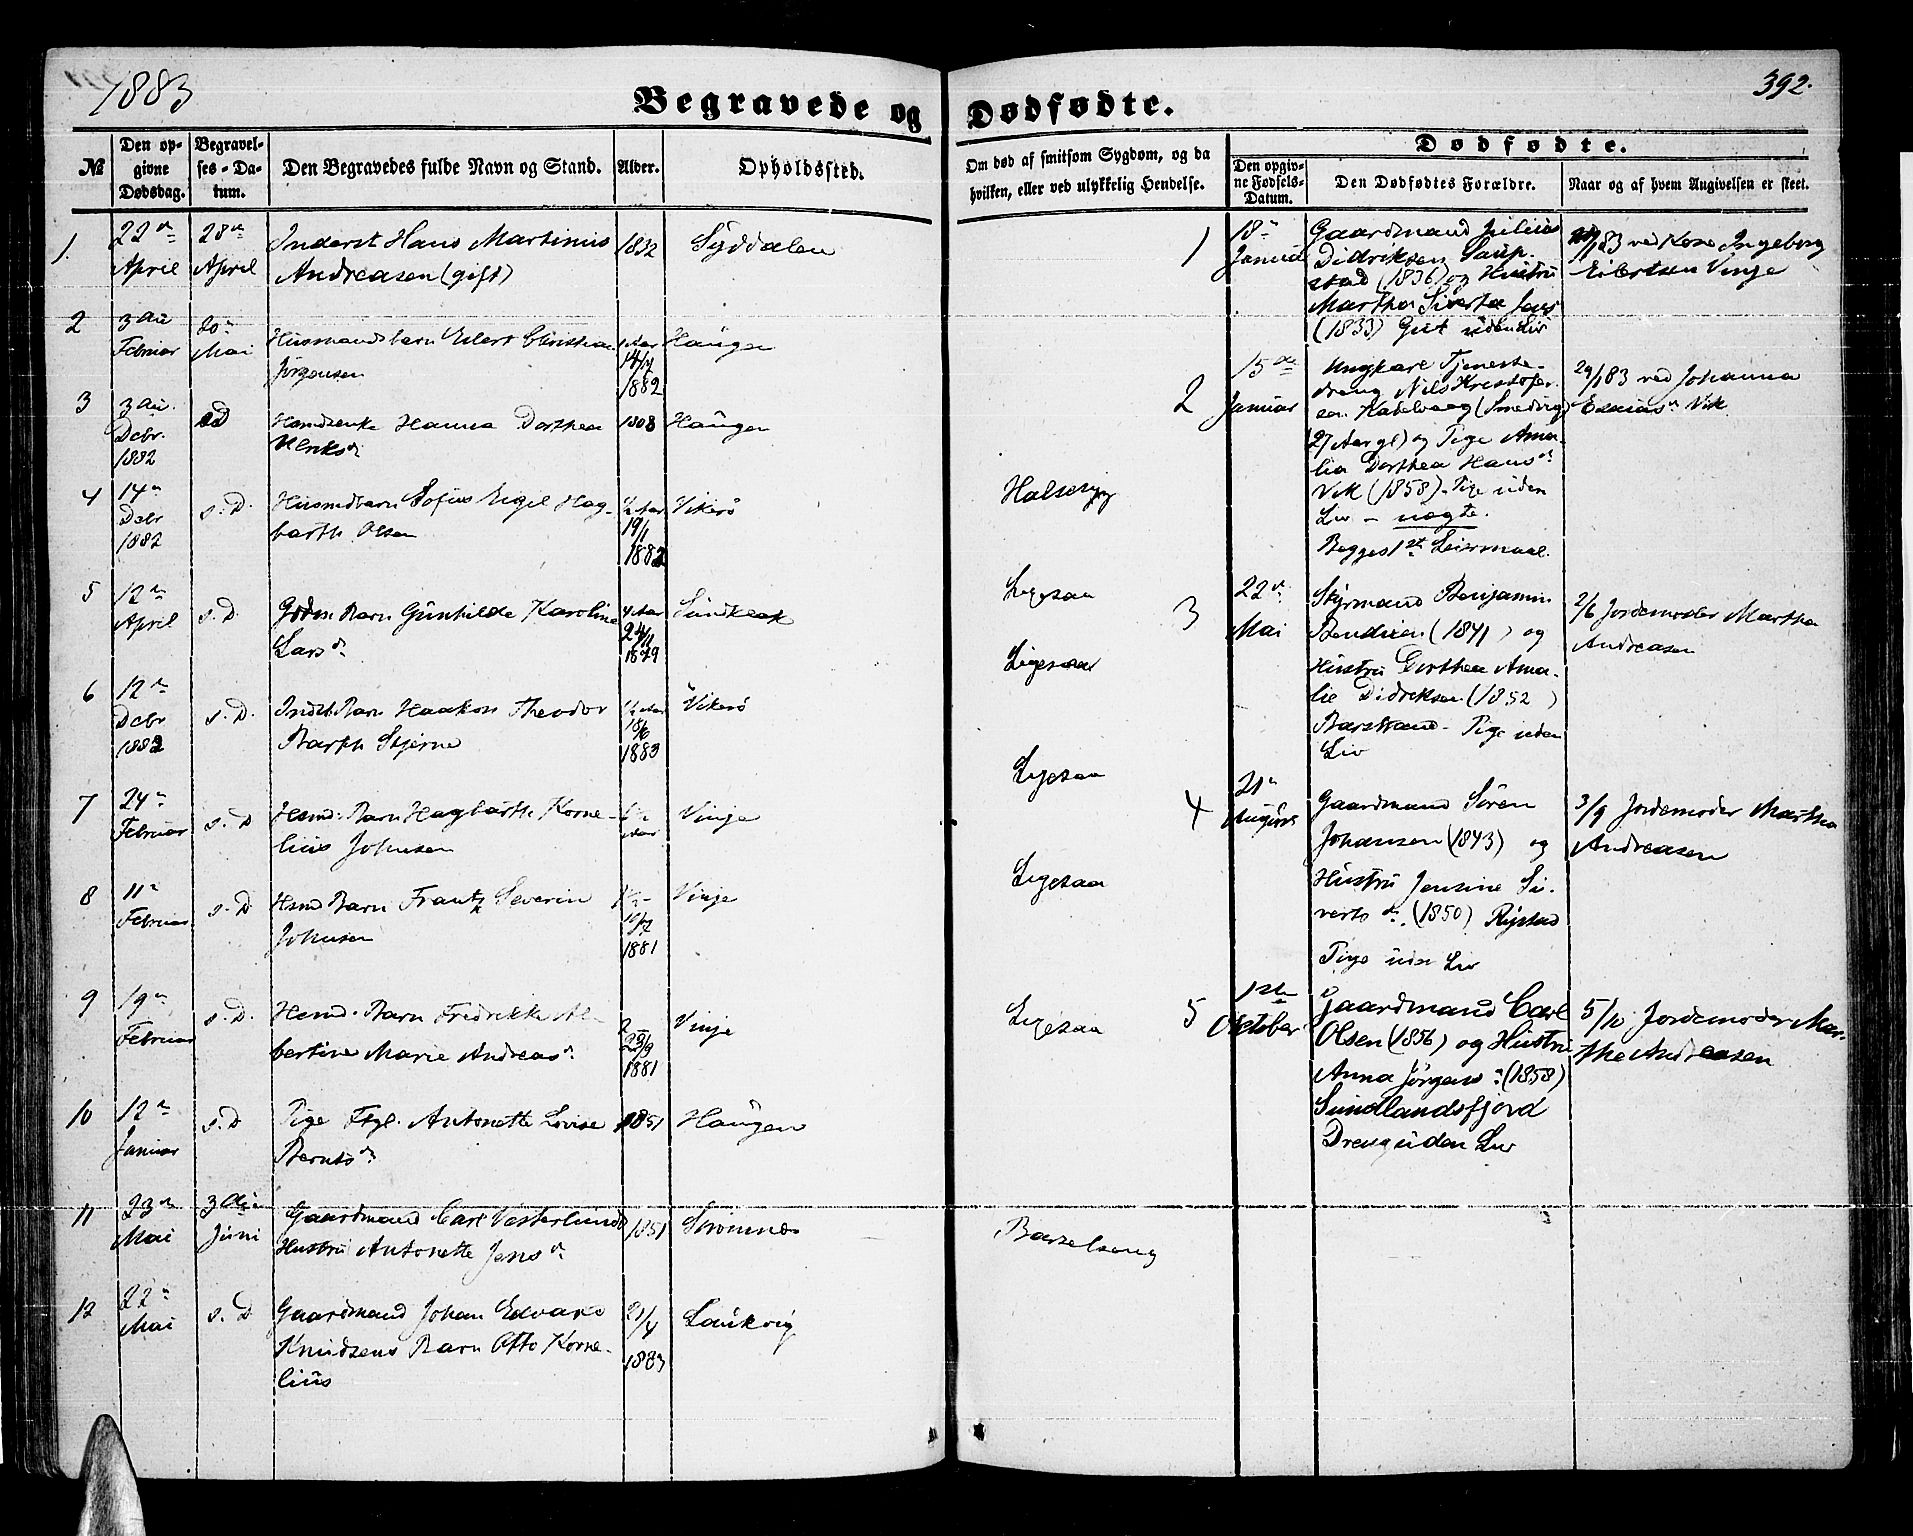 1883
392.
Begravede og Dødfødte.
№
Den op-
givne
Dødsdag.
Begravel-
ses-Da-
tum.
Den Begravedes fulde Navn og Stand.
Alder.
Opholdssted.
Om død af smitsom Sygdom, og da
hvilken, eller ved ulykkelig Hendelse.
Dødfødte.
Den opgiv-
ne Fødsels-
Datum.
Den Dødfødtes Forældre.
Naar og af hvem Angivelsen er skeet.
1.
22de
April
28de
April
Inderst Hans Martinius
Andreasen (gift)
1832
Syddalen
2
3die
Februar
20de
Mai
Husmandsbarn Edert Christian
Jørgensen
1 Aar
14/4
1882
Haugen
3
3die
Debr.
1882
s.D
Hsmdsenke Hanna Dorthea
Ulriksdr
1808
Haugen
4
14de
Debr
1882
s.D.
Husmdbarn Sofus Eigel Hag-
barth Olsen
½ Aar
19/1
1882
Vikerø
Halsesyg
5
12de
April
s.D
Grdm. Barn Gunhilde Karoline
Larsdr
4 Aar
24/11
1879
Sundklak
Ligesaa
6
12de
Debr
1882
s.D.
Indst. Barn Haakon Theodor
Barth Stjerne
½ Aar
18/6
1883
Vikerø
Ligesaa
7
24de
Februar
s.D
Hsmd. Barn Hagbarth Korne-
lius Johnsen
Aar
Vinje
Ligesaa
8
11te
Februar
s.D
Hsmd Barn Frantz Severin
Johnsen
1881
Vinje
Ligesaa
9
19de
Februar
s.D.
Hsmd. Barn Fredrikke Al-
bertine Marie Andreasdr
2
23/9
1881
Vinje
Ligesaa
10
12te
Januar
s.D
Pige Ftgl. Antonette Lovise
Berntsdr
1851
Haugen
11
23de
Mai
3die
Juni
Gaardmand Carl Vesterlunds
Hustru Antonette Jensdr
1851
Strømnes
Barselseng
12
22de
Mai
s.D
Gaardmand Johan Edvard
Knudsens Barn Otto Korne-
lius
21/4
1883
Laukvig
1
18de
Januar
Gaardmand Julius
Didriksen Saup-
stad (1836) og Hustru
Martha Sivertea Jens
(1833) Gut uden Liv
83 ved Kone Ingeborg
Eilertsen Vinje
2
15de
Januar
Ungkarl Tjeneste-
dreng Nils Kristofer-
sen Kabelvaag (Smedvig)
27 Aar gl) og Pige Ama-
lia Dorthea Hansdr
Vik (1858) - Pige uden
Liv - uægte.
Begges 1st Leiermaal.
29/1 83 ved Johanna
Esaiasdr Vik
3
22de
Mai
Styrmand Benjamin
Bendixen (1841) og
Hustru Dorthea Ama-
lie Didriksen (1852)
Barstrand - Pige uden
Liv
2/6 Jordemoder Martha
Andreasen
4
21de
August
Gaardmand Søren
Johansen (1843) og
Hustru Jensine Si-
vertsdr. (1850) Rystad
Pige uden Liv
3/9 Jordemoder Martha
Andreasen
5
1ste
Oktober
Gaardmand Carl
Olsen (1856) og Hustru
Anna Jørgensdr (1858)
Sundlandsfjord
Dreng uden Liv
5/10 Jordemoder Mar-
the Andreasen